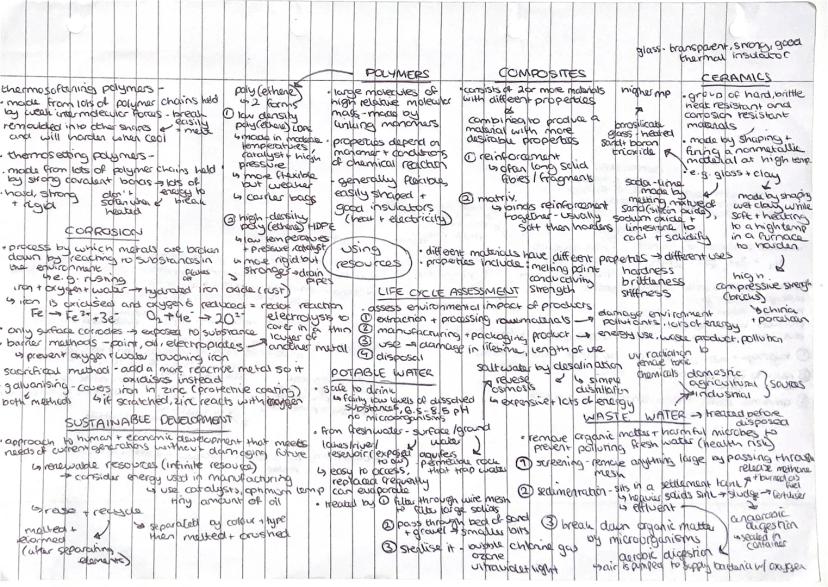 glass - transparent, strong, good
thermal insulator
thermosoftening polymers -
• made from lots of polymer chains held
by weak intermolecular forces - break
easily
+ melt
remoulded into other shapes
and will harden when cool
thermosetting polymers -
• made from lots of polymer chains held
by strong covalent bonds → lots of
energy to
break
• hard, strong
+ rigid
don't
soften when
heated
CORROSION
• process by which metals are broken
down by reacting to substances in
the environment
↳ e.g. rusting
iron + oxygen + water → hydrated iron oxide (rust)
↳ iron is oxidised and oxygen is reduced = redox reaction
Fe → Fe³⁺ + 3e⁻ O₂ + 4e⁻ → 2O²⁻
• only surface corrodes → exposed to substance
• barrier methods - paint, oil, electroplating
electrolysis to
cover in a thin
layer of
another metal
↳ prevent oxygen + water touching iron
sacrificial method - add a more reactive metal so it
oxidises instead
galvanising - covers iron in zinc (protective coating)
both methods ↳ if scratched, zinc reacts with oxygen
SUSTAINABLE DEVELOPMENT
• approach to human + economic development that meets
needs of current generations without damaging future
↳ renewable resources (infinite resource)
→ consider energy used in manufacturing
↳ use catalysts, optimum temp
tiny amount of oil
↳ reuse + recycle
melted +
reformed
(after separating
elements)
↳ separated by colour + type
then melted + crushed
poly(ethene)
↳ 2 forms
① low density
poly(ethene) LDPE
↳ made in moderate
temperatures
catalyst + high
pressure
↳ more flexible
but weaker
↳ carrier bags
② high-density
poly(ethene) HDPE
↳ low temperatures
+ pressure, catalyst
↳ more rigid but
stronger → drain
pipes
POLYMERS
• large molecules of
high relative molecular
mass - made by
linking monomers
• properties depend on
monomer + conditions
of chemical reaction
• generally flexible,
easily shaped +
good insulators
(heat + electricity)
using
resources
COMPOSITES
• consists of 2 or more materials
with different properties
combined to produce a
material with more
desirable properties
① reinforcement
↳ often long solid
fibres / fragments
② matrix
↳ binds reinforcement
together - usually
soft then hardens
CERAMICS
• group of hard, brittle
heat resistant and
corrosion resistant
materials
• made by shaping +
firing a nonmetallic
material at high temp
• e.g. glass + clay
higher mp
borosilicate
glass - heated
sand + boron
trioxide
soda-lime
made by
melting mixture of
sand (silicon oxide),
sodium oxide +
limestone to
cool + solidify
made by shaping
wet clay while
soft + heating
to a high temp
in a furnace
to harden
high
compressive strength
(bricks)
↳ china +
porcelain
• different materials have different properties → different uses
• properties include: melting point
conductivity
strength
hardness
brittleness
stiffness
LIFE CYCLE ASSESSMENT
• assess environmental impact of products
① extraction + processing raw materials → damage environment
pollutants, lots of energy
② manufacturing + packaging product → energy use, waste product, pollution
③ use → damage in lifetime, length of use
④ disposal
POTABLE WATER
• safe to drink
↳ fairly low levels of dissolved
substances, 6.5 - 8.5 pH
no microorganisms
• from freshwater - surface / ground
water
lakes / river /
reservoir (exposed
to air)
aquifers
permeable rock
that trap water
↳ easy to access,
replaced frequently
can evaporate
• treated by ① filter through wire mesh
to filter large solids
② pass through bed of sand
+ gravel → smaller bits
③ sterilise it - bubble chlorine gas
ozone
ultraviolet light
saltwater by desalination
reverse
osmosis
↳ simple
distillation
↳ expensive + lots of energy
uv radiation to
remove toxic
chemicals
domestic
agricultural
industrial
sources
WASTE WATER → treated before
disposed
• remove organic matter + harmful microbes to
prevent polluting fresh water (health risk)
① screening - remove anything large by passing through
mesh
② sedimentation - sits in a settlement tank
↳ heavier solids sink → sludge → fertiliser
↳ effluent
release methane
+ burned as
fuel
anaerobic
digestion
↳ sealed in
container
③ break down organic matter
by microorganisms
aerobic digestion
↳ air is pumped to supply bacteria w/ oxygen